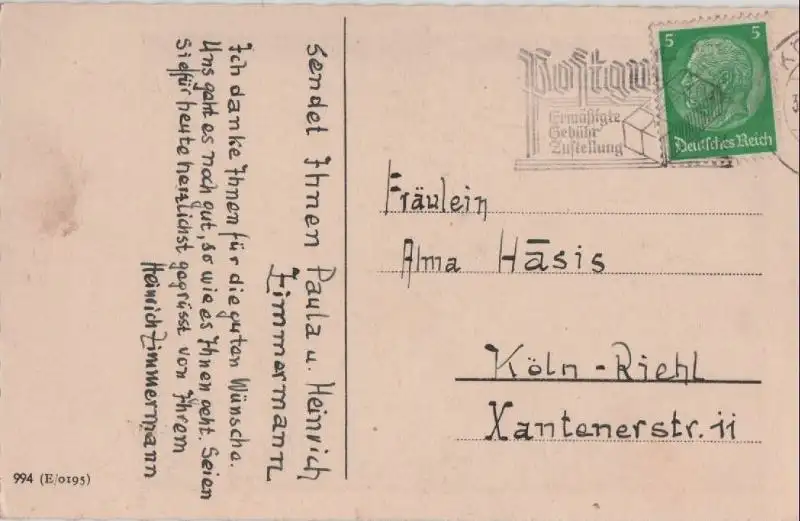 sendet Ihnen Paula u. Heinrich
Zimmermann
Ich danke Ihnen für die guten Wünsche.
Uns geht es noch gut, so wie es Ihnen geht. Seien
Sie für heute herzlichst gegrüsst von Ihrem
Heinrich Zimmermann
994 (E/0195)
Ermäßigte
Gebühr
Zustellung
5 5
Deutsches Reich
Fräulein
Alma Häsis
Köln-Riehl
Xantenerstr. 11